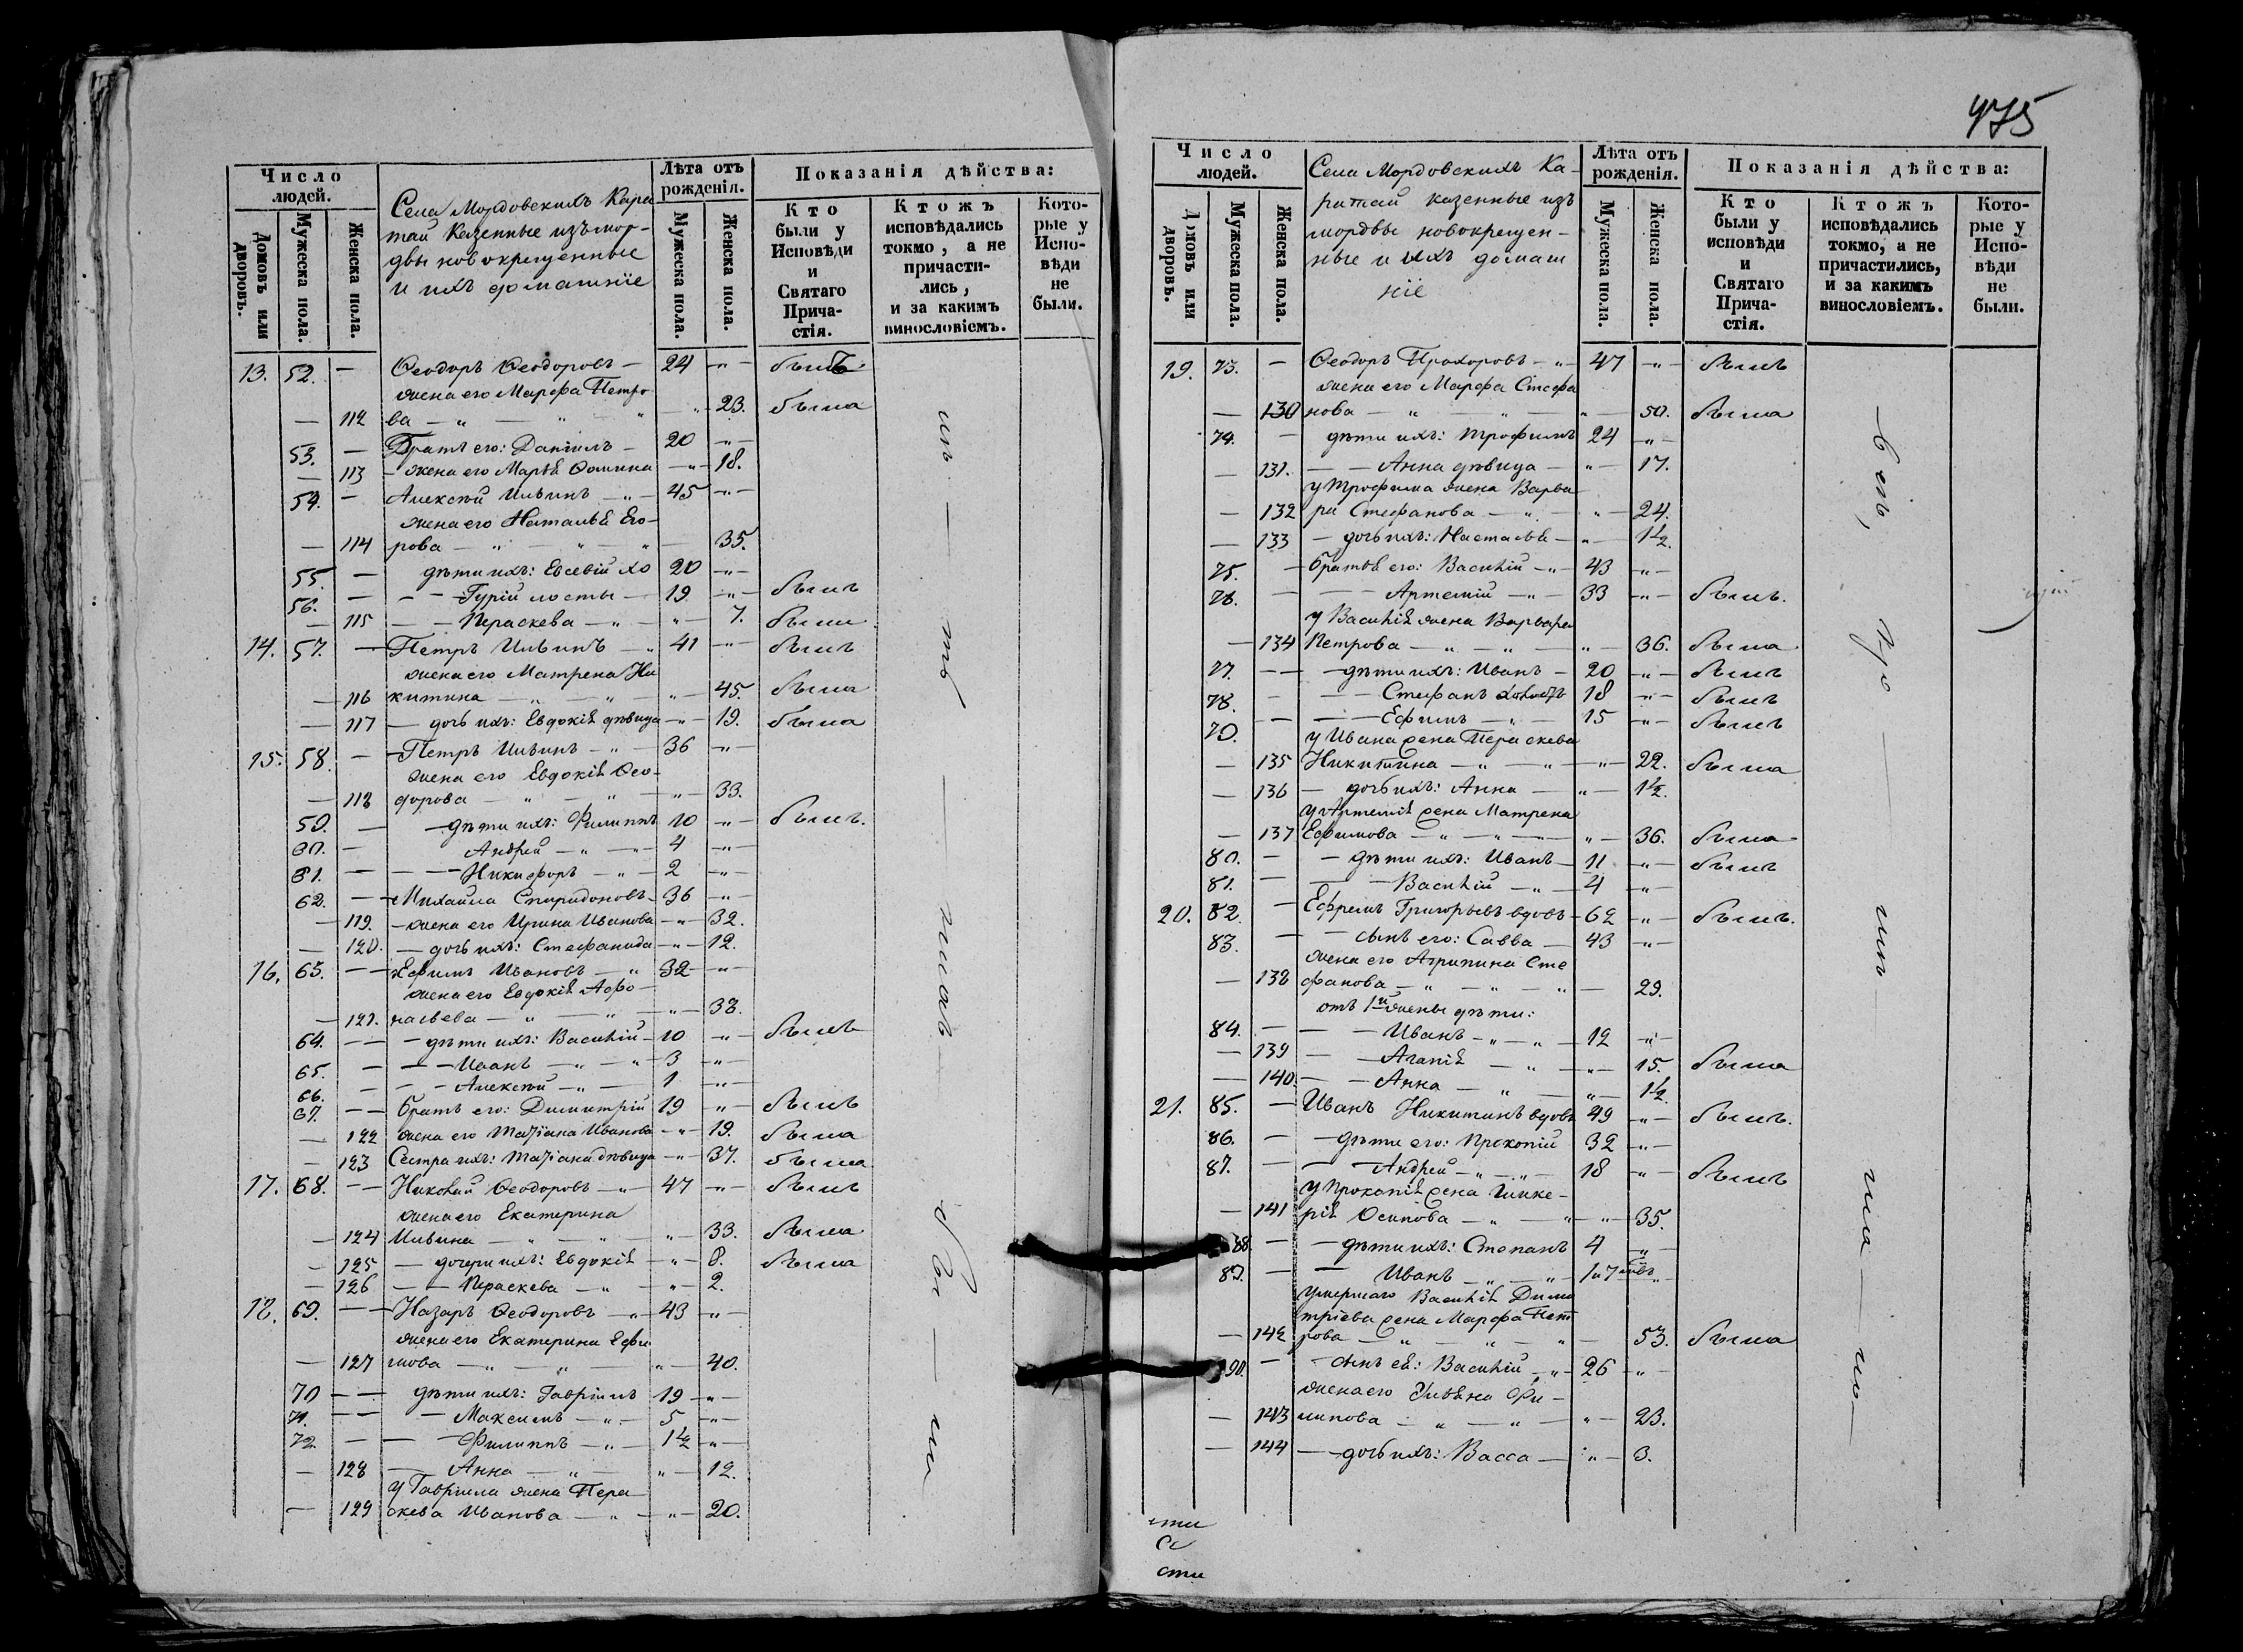 475
Число
людей.
Домовъ или дворовъ.
Мужеска пола.
Женска пола.
Села Мордовскихъ Кара
тай казенные изъ мор-
двы новокрещенные
и ихъ домашніе
Лѣта отъ
рожденія.
Мужеска пола.
Женска пола.
Показанія дѣйства:
Кто
были у
Исповѣди
и
Святаго
Прича-
стія.
Ктожъ
исповѣдались
токмо, а не
причасти-
лись,
и за какимъ
винословіемъ.
Кото-
рые у
Испо-
вѣди
не
были.
13. 52. — Ѳеодоръ Ѳеодоровъ — 24 —"— былъ
жена его Марфа Петро
— 112 ва — " — " — " 23. была
53. — Братъ его: Даніилъ — 20 —"—
— 113 — жена его Марья Ѳомина —"— 18.
54. — Алексѣй Ильинъ —"— 45 —"—
жена его Наталья Его-
— 114 рова — " — " — " — 35.
55. — дѣти ихъ: Евсевій хо 20 —"—
56. — — — Гурій лосты — 19 —"— былъ
— 115 — — Параскева — " — " — 7. была
14. 57. — Петръ Ильинъ — " 41 —"— былъ
жена его Матрена Ни
— 116 китина — " — " — " — 45. была
— 117 — дочь ихъ: Евдокія дѣвица —"— 19. была
15. 58. — Петръ Ильинъ —"— 36 —"—
жена его Евдокія Ѳео-
— 118 дорова — " — " — " — 33.
59. — — дѣти ихъ: Филиппъ 10 —"— былъ.
60. — Андрей — " — " — 4 —"—
61. — — — Никифоръ —"— 2 —"—
62. — Михайла Спиридоновъ — 36 —"—
— 119. — жена его Ирина Иванова —"— 32.
— 120. — дочь ихъ: Стефанида —"— 12.
16. 63. — — Ефимъ Ивановъ — " 32 —"—
жена его Евдокія Афо —
— 121. насьева — " — " — " — 38.
64. — — дѣти ихъ: Василій — 10 —"— былъ
65. — — — Иванъ — " — " 3 —"—
66. — — — Алексѣй —"— 1 —"—
67. — — братъ его: Димитрій 19 —"— былъ
— 122 жена его Татіана Иванова —"— 19. была
— 123 Сестра ихъ: Татіана дѣвица —"— 37. была
17. 68. — — Николай Ѳеодоровъ —"— 47 —"— былъ
жена его Екатерина
— 124 Ильина — " — " — " — 33. была
— 125 — дочери ихъ: Евдокія —"— 8. была
— 126 — — Параскева — " — " — 2.
18. 69. — — Назаръ Ѳеодоровъ — " 43 —"—
жена его Екатерина Ефи
— 127 мова — " — " — " — 40.
70 — — дѣти ихъ: Гавріилъ 19 —"—
71. — — — Максимъ —"— 5 —"—
72. — — — Филиппъ —"— 1½ —"—
— 128 — Анна — " — " — 12.
У Гавріила жена Пара
— 129 скева Иванова —"— —"— 20.
Число
людей.
Домовъ или дворовъ.
Мужеска пола.
Женска пола.
Села Мордовскихъ Ка-
ратай казенные изъ
мордвы новокрещен-
ные и ихъ домаш
ніе
Лѣта отъ
рожденія.
Мужеска пола.
Женска пола.
Показанія дѣйства:
Кто
были у
исповѣди
и
Святаго
Прича-
стія.
Ктожъ
исповѣдались
токмо, а не
причастились,
и за какимъ
винословіемъ.
Кото-
рые у
Испо-
вѣди
не
были.
19. 73. — Ѳеодоръ Прохоровъ —"— 47 —"— былъ
жена его Марфа Стефа
— 130 нова — " — " — " — 50. была
74. — дѣти ихъ: Трофимъ 24 —"—
— 131. — — Анна дѣвица — " — 17.
у Трофима жена Варва
— 132 ра Стефанова — " — " — 24.
— 133 — дочь ихъ: Настасья — " — 1½.
75. — братья его: Василій —"— 43 —"—
76. — — — Артемій —"— 33 —"— былъ.
у Василія жена Варвара
— 134 Петрова — " — " — " — 36. была
77. — — — дѣти ихъ: Иванъ — 20 —"— былъ
78. — — Стефанъ холостъ 18 —"— былъ
79. — — — Ефимъ — " — 15 —"— былъ
у Ивана жена Параскева
— 135 Никитина — " — " — " — 22. была
— 136 — дочь ихъ: Анна — " — 1½.
у Артемія жена Матрена
— 137 Ефимова — " — " — " — 36. была
80. — — дѣти ихъ: Иванъ — 11 —"— былъ
81. — — — Василій —"— 4 —"—
20. 82. — Ефремъ Григорьевъ вдовъ — 62 —"— былъ.
83. — — сынъ его: Савва — 43 —"—
жена его Агрипина Сте
— 138 фанова — " — " — " — 29.
отъ 1й жены дѣти:
84. — — — Иванъ — " — " — 12 —"—
— 139 — — Агапія — " — " — 15. была
— 140. — — Анна — " — " — 1½.
21. 85. — Иванъ Никитинъ вдовъ 49 —"— былъ.
86. — — дѣти его: Прокопій 32 —"—
87. — — — Андрей — " — " — 18 —"— былъ
у Прокопія жена Глике-
— 141 рія Осипова — " — " — " — 35.
88. — — дѣти ихъ: Степанъ 4 —"—
89. — — Иванъ — " — "
умершаго Василія Дими
тріева жена Марфа Пет
— 142 рова — " — " — " — 53. была
90. — — сынъ ея: Василій —"— 26 —"—
жена его Ульяна Фи-
— 143 липова — " — " — " — 23.
— 144 — дочь ихъ: Васса — " — 3.